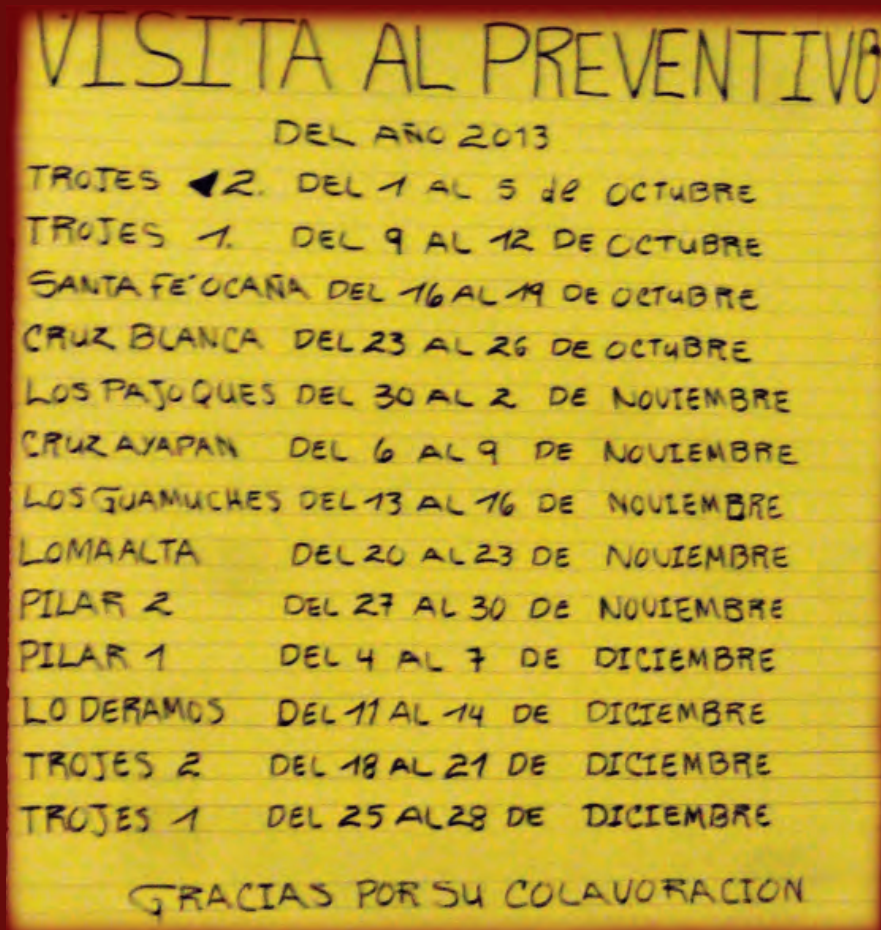 VISITA AL PREVENTIVO
DEL AÑO 2013
TROJES 2. DEL 1 AL 5 de OCTUBRE
TROJES 1. DEL 9 AL 12 DE OCTUBRE
SANTA FE´OCAÑA DEL 16 AL 19 DE OCTUBRE
CRUZ BLANCA DEL 23 AL 26 DE OCTUBRE
LOS PAJOQUES DEL 30 AL 2 DE NOVIEMBRE
CRUZ AYAPAN DEL 6 AL 9 DE NOVIEMBRE
LOS GUAMUCHES DEL 13 AL 16 DE NOVIEMBRE
LOMA ALTA DEL 20 AL 23 DE NOVIEMBRE
PILAR 2 DEL 27 AL 30 DE NOVIEMBRE
PILAR 1 DEL 4 AL 7 DE DICIEMBRE
LO DERAMOS DEL 11 AL 14 DE DICIEMBRE
TROJES 2 DEL 18 AL 21 DE DICIEMBRE
TROJES 1 DEL 25 AL 28 DE DICIEMBRE
GRACIAS POR SU COLAVORACION